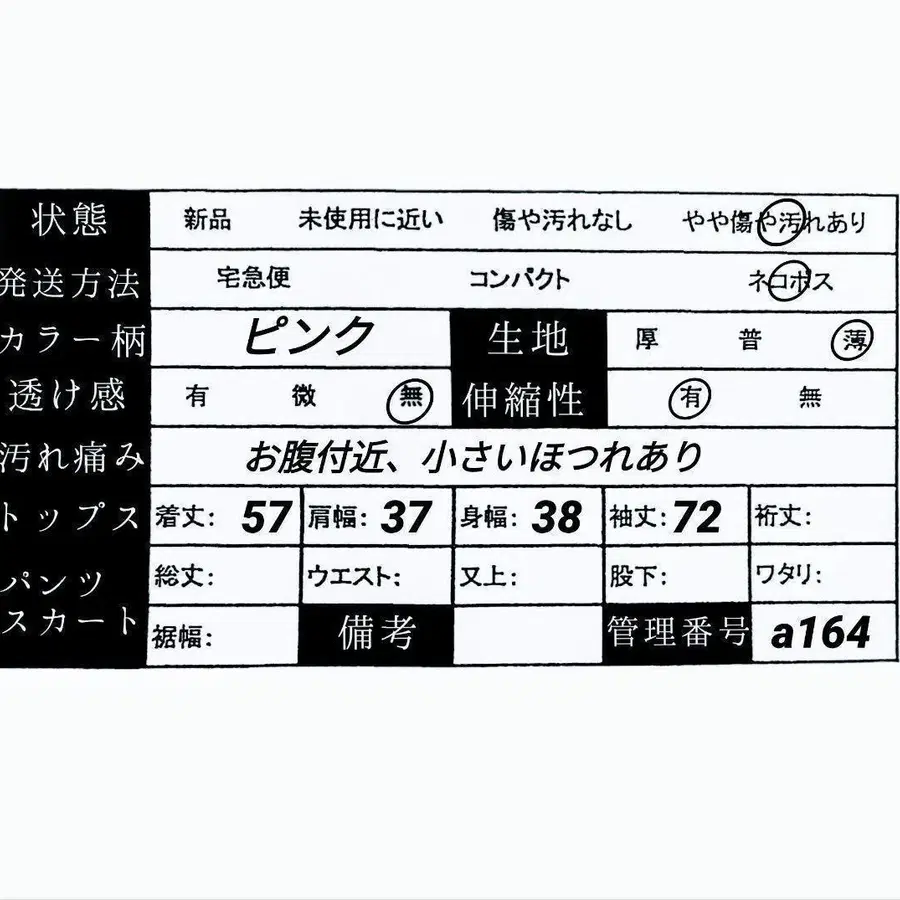 状態 新品 未使用に近い 傷や汚れなし やや傷や汚れあり
発送方法 宅急便 コンパクト ネコポス
カラー柄 ピンク 生地 厚 普 薄
透け感 有 微 無 伸縮性 有 無
汚れ痛み お腹付近、小さいほつれあり
トップス 着丈: 57 肩幅: 37 身幅: 38 袖丈: 72 裄丈:
パンツ 総丈: ウエスト: 又上: 股下: ワタリ:
スカート 裾幅: 備考 管理番号 a164